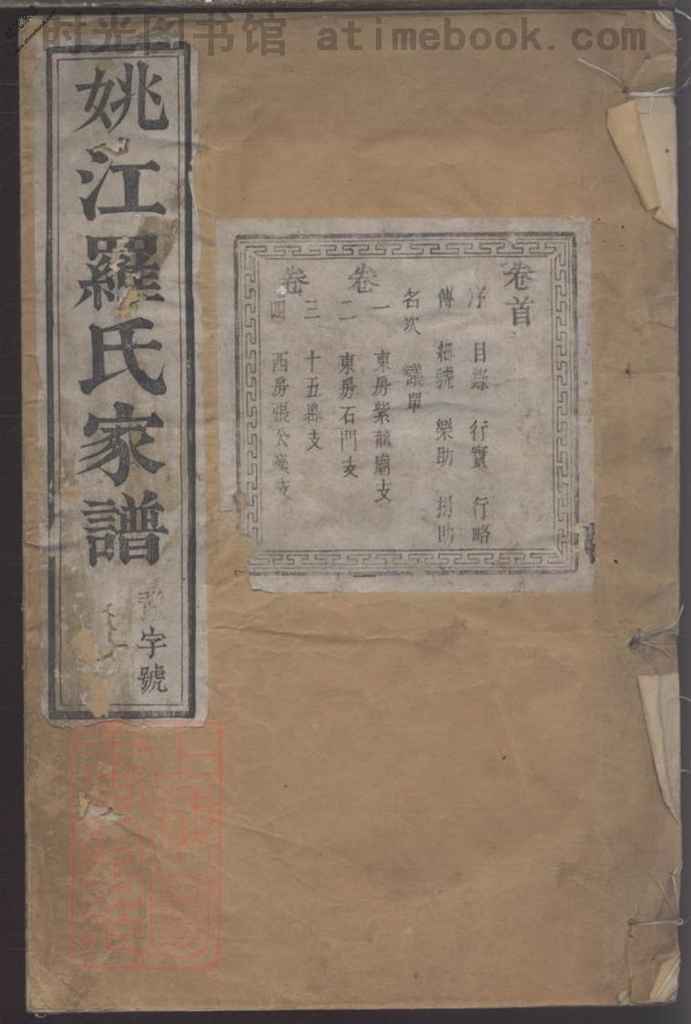 时光图书馆 atimebook.com
姚江羅氏家譜
字號
卷首
序 目錄 行實 行略
傳 樂助 捐助
名次 議單
卷
一 東房紫龍廟支
二 東房石門支
卷
三 十五器支
四 西房張公
支